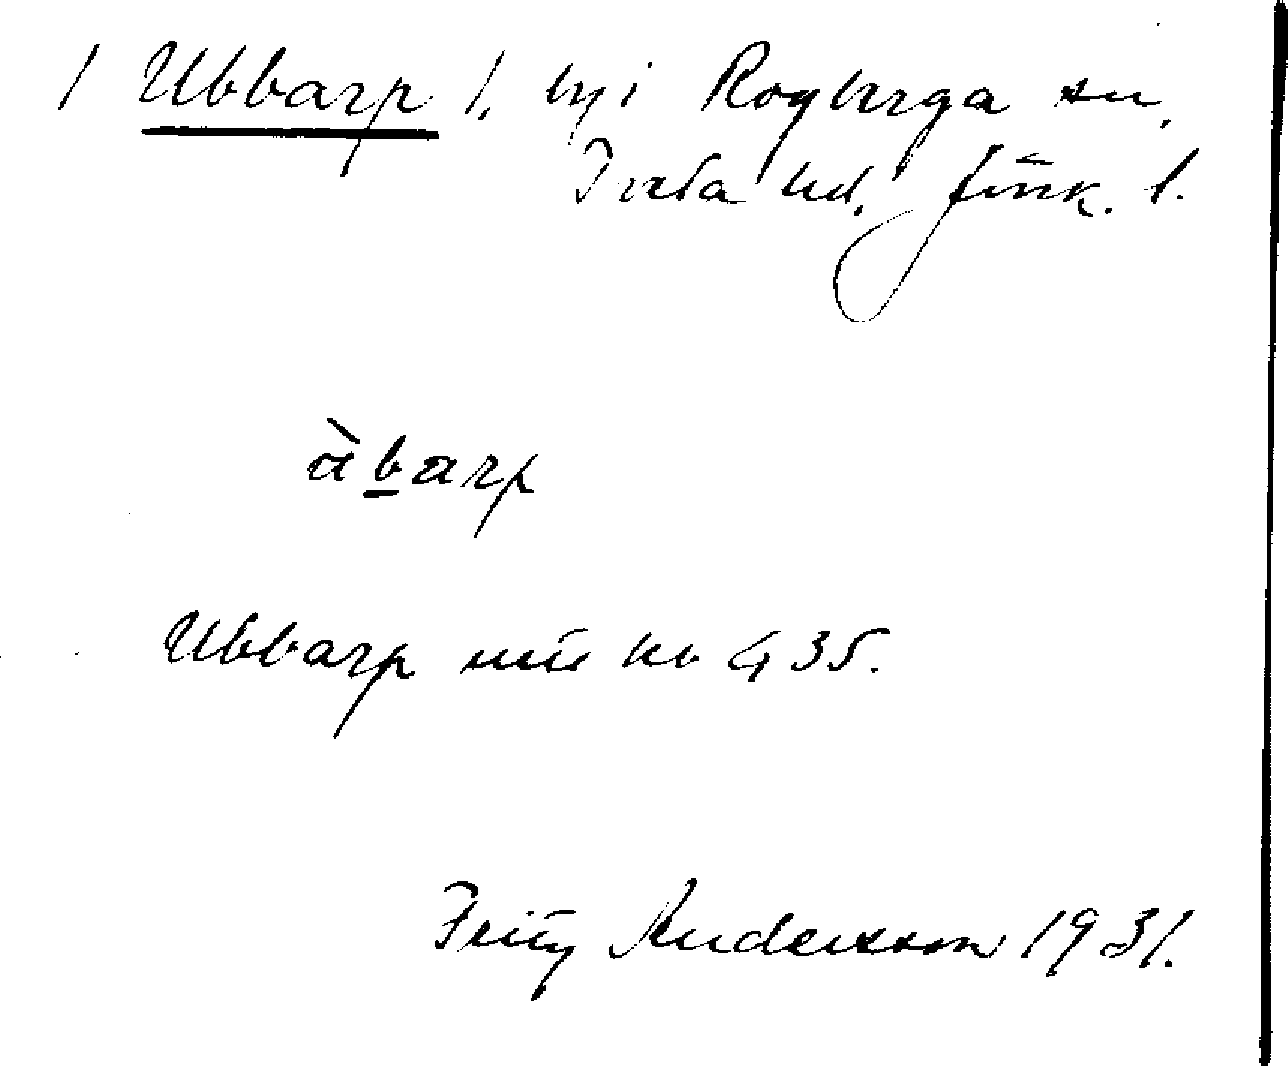 / Ubbarp /, by i Rogberga sn,
Tveta hd, Jönk. l.
àbarp
Ubbarp mtl kb 435.
Fritz Andersson 1931.